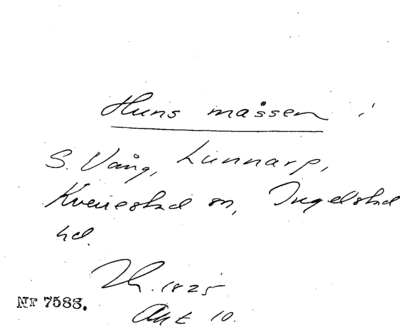 Huns måssen i
S. Vång, Lunnarp,
Kverrestad sn, Ingelstad
hd.
Th. 1825
Akt 10.
Nr 7588.